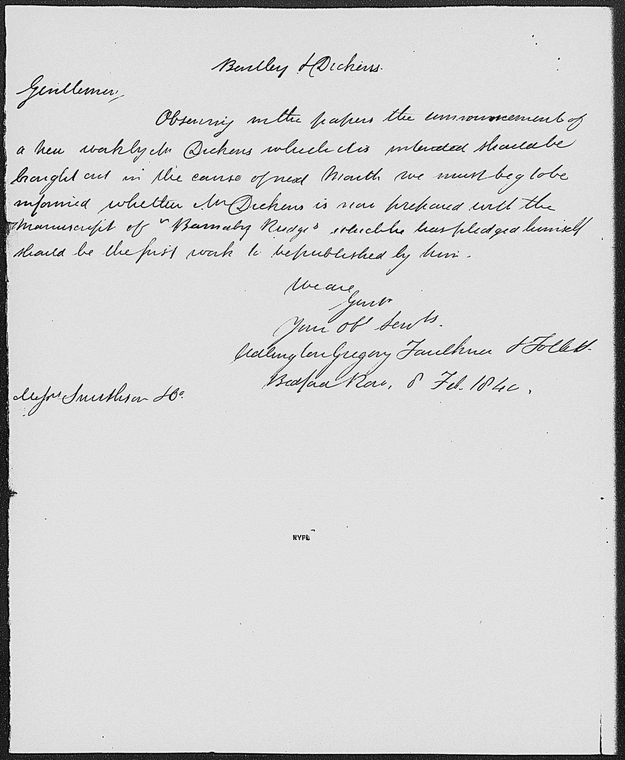 Bentley & Dickens.
Gentlemen,
Observing in the papers the announcement of
a new work by Mr Dickens which it is intended should be
brought out in the course of next Month we must beg to be
informed whether Mr Dickens is now prepared with the
Manuscript of "Barnaby Rudge" which he has pledged himself
should be the first work to be published by him.
We are
Gent
Your Obt Servts.
Adlington Gregory Faulkner & Follett.
Bedford Row, 8 Feb. 1840.
Messrs Smithson & Co
NYPL